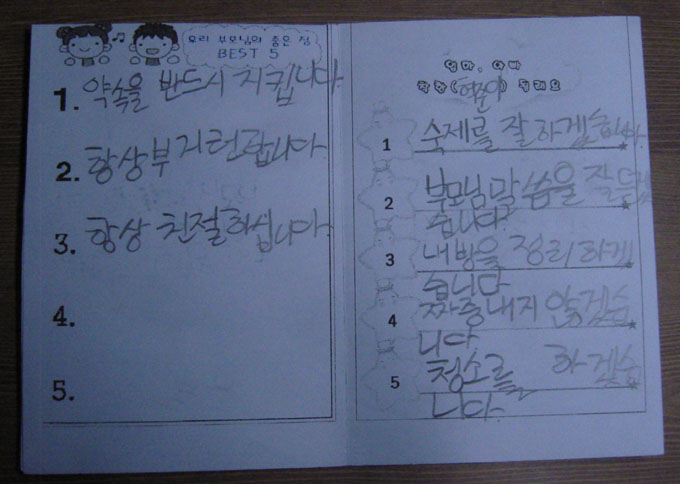 우리 부모님의 좋은 점
BEST 5
1. 약속을 반드시 지킵니다.
2. 항상 부지런합니다
3. 항상 친절하십니다.
4.
5.
엄마, 아빠
착한(현준이) 될래요
1 숙제를 잘 하겠습니다.
2 부모님 말씀을 잘
습니다.
3 내 방을 정리 하게
습니다
4 짜증내지 않겠습
니다
5 청소를 하겠습
니다.